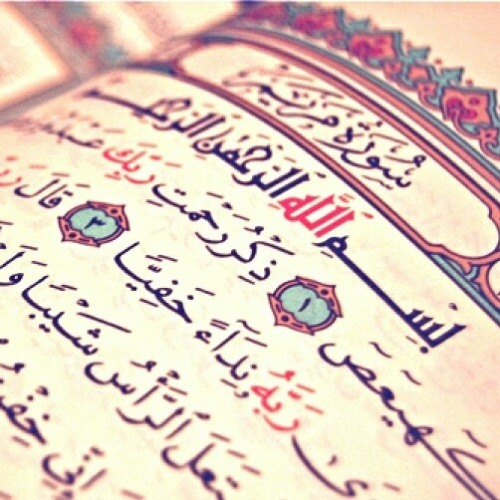 سُورَةُ مَرْيَمَ
بِسْمِ اللَّهِ الرَّحْمَٰنِ الرَّحِيمِ
كٓهيعٓصٓ ١ ذِكْرُ رَحْمَتِ رَبِّكَ عَبْدَهُ
رَبَّهُ نِدَآءً خَفِيًّا ٣ قَالَ رَبِّ
شْتَعَلَ الرَّأْسُ شَيْبًا وَلَمْ
وَإِنِّي خِفْتُ